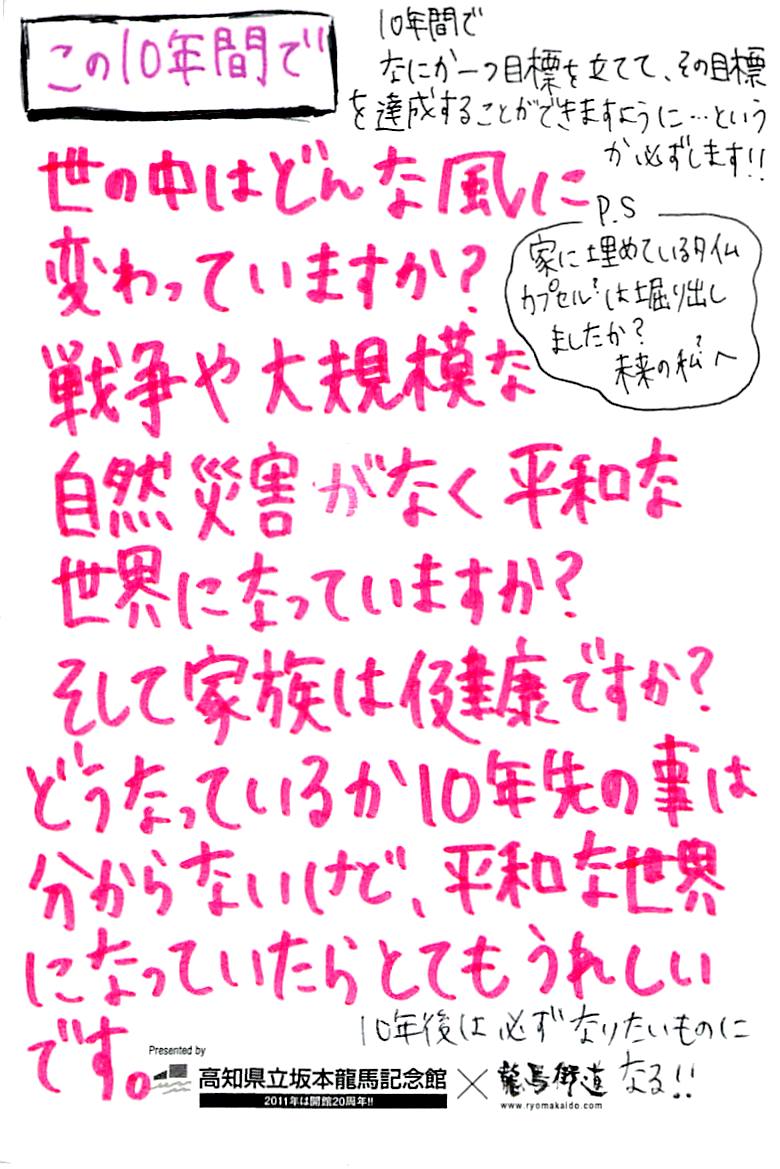 この10年間で
10年間で
なにか一つ目標を立てて、その目標
を達成することができますように…という
か必ずします!!
世の中はどんな風に
変わっていますか?
戦争や大規模な
自然災害がなく平和な
世界になっていますか?
そして家族は健康ですか?
どうなっているか10年先の事は
分からないけど、平和な世界
になっていたらとてもうれしい
です。
P.S
家に埋めているタイム
カプセル?は堀り出し
ましたか?
未来の私?へ
10年後は必ずなりたいものに
なる!!
Presented by
高知県立坂本龍馬記念館
2011年は開館20周年!!
×
龍馬街道
www.ryomakaido.com